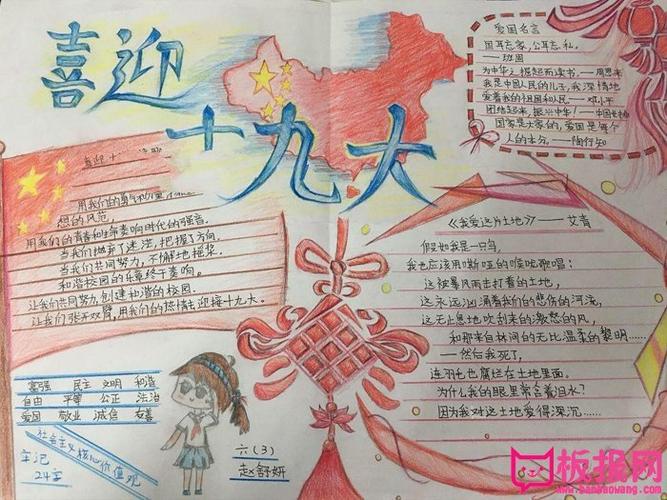 喜迎
十九大
爱国名言
国耳忘家,公耳忘私。
——班固
为中华之崛起而读书——周恩来
我是中国人民的儿子,我深情地
爱着我的祖国和人民——邓小平
团结起来,振兴中华!
国家是大家的,爱国是每个
人的本分。——陶行知
喜迎十
用我们的勇气和理
想的风范,
用我们的青春和生命奏响时代的强音。
当我们抛弃了迷茫,把握了方向,
当我们共同努力,不懈地摇桨,
和谐校园的乐章终于奏响。
让我们共同努力,创建和谐的校园。
让我们张开双臂,用我们的热情去迎接十九大。
《我爱这片土地》——艾青
假如我是一只鸟,
我也应该用嘶哑的喉咙歌唱:
这被暴风雨击打着的土地,
这永远汹涌着我们的悲伤的河流,
这无止息地吹刮来的激怒的风,
和那来自林间的无比温柔的黎明……
——然后我死了,
连羽毛也腐烂在土地里面。
为什么我的眼里常含着泪水?
因为我对这土地爱得深沉……
富强 民主 文明 和谐
自由 平等 公正 法治
爱国 敬业 诚信 友善
社会主义核心价值观
牢记
24字
六(3)
赵舒妍
板报网
www.banbaowang.com